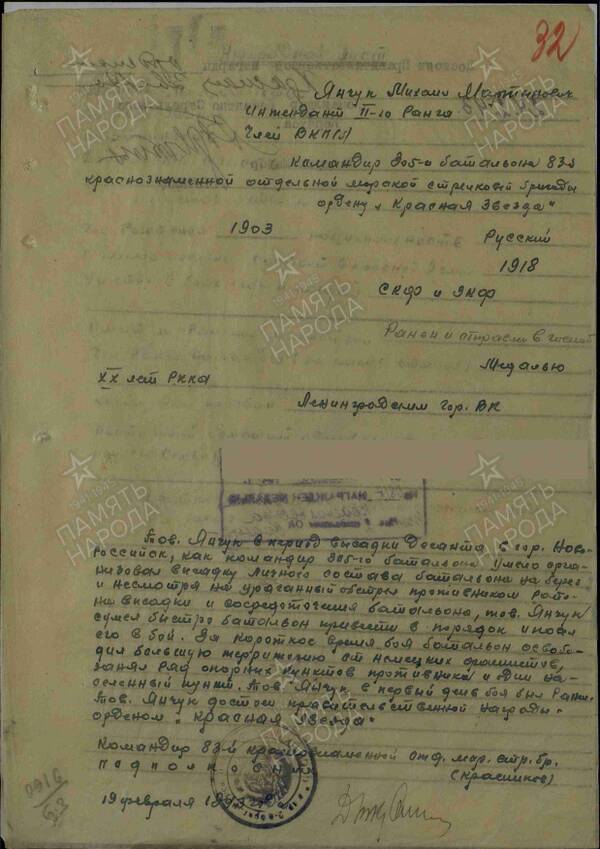 32
Янчук Михаил Мартинович
Интендант II-го Ранга
Член ВКП(б)
Командир 305-го батальона 83-й
краснознаменной отдельной морской стрелковой бригады
ордену „Красная Звезда"
1903 Русский
1918
СКФ и ЗКФ
Ранен и отправлен в госпит
Медалью
XX лет РККА
Ленинградским Гор. ВК
НАГРАЖДЕН МЕДАЛЬЮ
Тов. Янчук в период высадки Десанта в гор. Ново-
российск, как командир 305-го батальона умело орга-
низовал высадку личного состава батальона на берег
и несмотря на ураганный обстрел противником райо-
на высадки и сосредоточения батальона, тов. Янчук
сумел быстро батальон привести в порядок и повел
его в бой. За короткое время боя батальон освобо-
дил большую территорию от немецких фашистов,
занял ряд опорных пунктов противника и один на-
селенный пункт. Тов. Янчук в первый день боя был Ранен.
Тов. Янчук достоин правительственной награды
орденом „Красная Звезда"
Командир 83-й краснознаменной отд. мор. стр. бр.
подполковник (Красников)
19 февраля 1943 г.
0916
ПАМЯТЬ НАРОДА
1941-1945